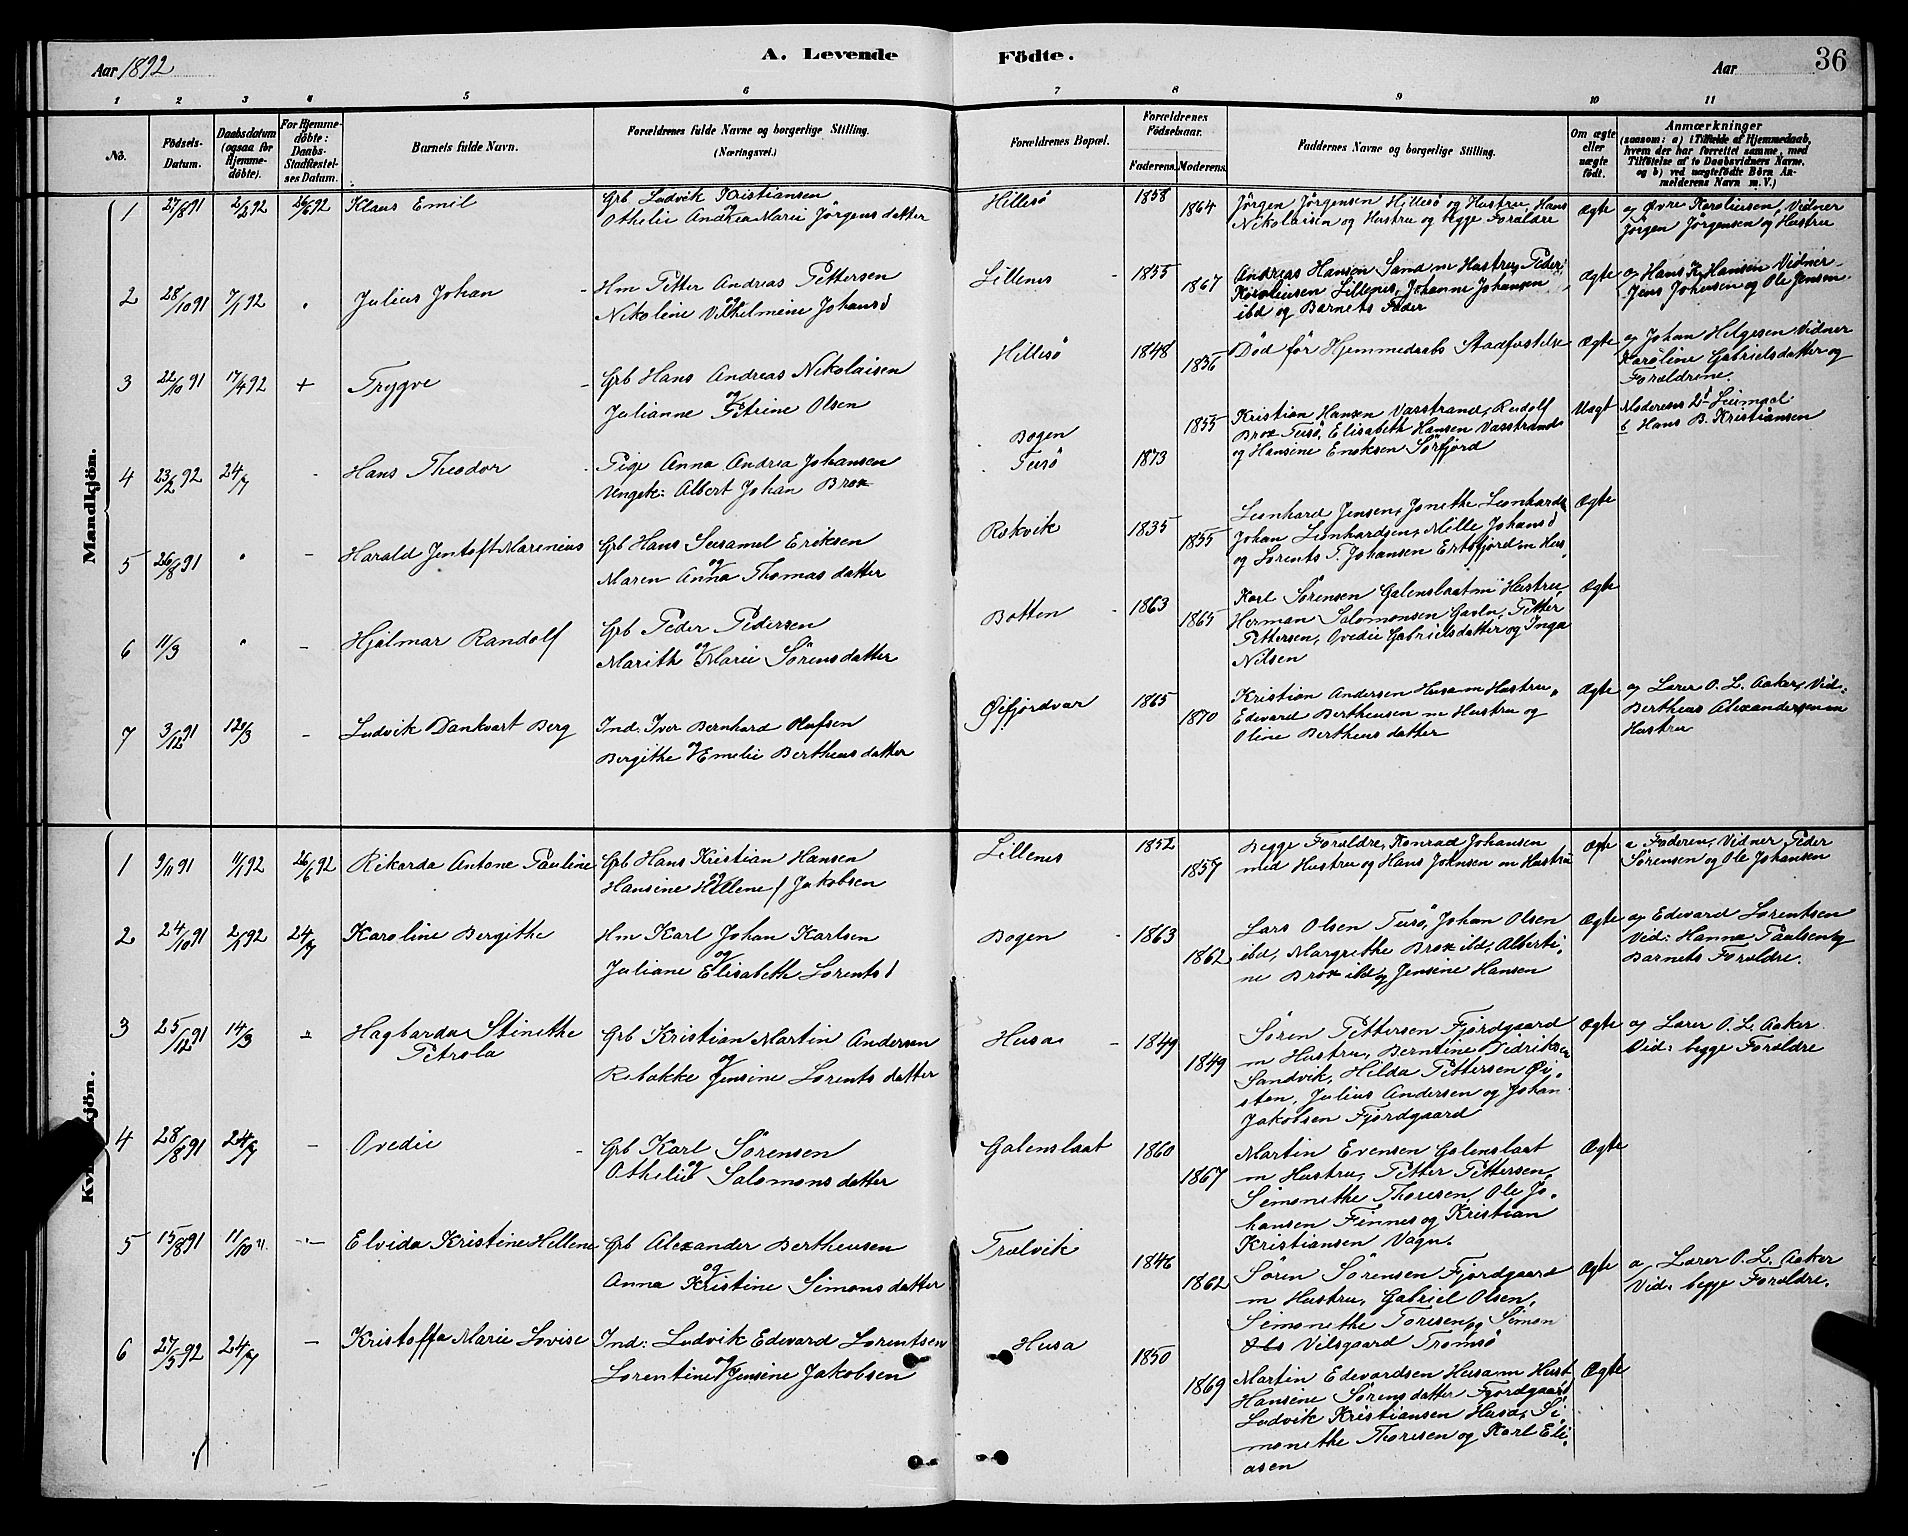 Aar 1892
A. Levende
Födte.
Aar
36
1 2 3 4 5 6 7 8 9 10 11
No.
Födsels-Datum.
Daabsdatum (ogsaa for Hjemme-döbte).
For Hjemme-döbte: Daabs-Stadfæstel-ses Datum.
Barnets fulde Navn.
Forældrenes fulde Navne og borgerlige Stilling.
(Næringsvei.)
Forældrenes Bopæl.
Forældrenes Födselsaar.
Faderens. Moderens.
Faddernes Navne og borgerlige Stilling.
Om ægte eller uægte födt.
Anmærkninger
(saasom: a) i Tilfælde af Hjemmedaab,
hvem der har forrettet samme, med
Tilföielse af to Daabsvidners Navne,
og b) ved uægtefödte Börn An-
melderens Navn m. V.)
Mandkjön.
1 27/8 91 2/2 92 26/6 92 Klaus Emil
Grb Ludvik Kristiansen
og
Othelie Andrea Marie Jörgensdatter
Hillesö 1858 1864
Jörgen Jörgensen Hillesö og Hustru, Hans
Nikolaisen og Hustru og begge Forældre
Ægte
a, Övre Karoliusen, Vidner
Jörgen Jörgensen og Hustru
2 28/10 91 7/1 92 " Julius Johan
Hm Petter Andreas Pettersen
og
Nikoline Vilhelmine Johansd
Lillenes 1855 1867
Andreas Hansen Sand m Hustru, Peder
Karoliusen Lillenes, Johanne Johansen
ibd og Barnets Fader
Ægte
a, Hans K. Hansen Vidner
Jens Johnsen og Ole Jensen
3 22/10 91 17/4 92 + Trygve
Grb Hans Andreas Nikolaisen
og
Julianne Petrine Olsen
Hillesö 1848 1856
Död för Hjemmedaabs Stadfestelse
Ægte
a, Johan Helgesen Vidner
Karoline Gabrielsdatter og
Forældrene.
4 23/2 92 24/7 - Hans Theodor
Pige Anna Andrea Johansen
Ungek: Albert Johan Brox
Bogen
Tusö 1873 1855
Kristian Hansen Vasstrand, Rudolf
Brox Tusö, Elisabeth Hansen Vasstrand
og Hansine Enoksen Sörfjord
Uægt
Moderens 2det Leiermaal
b Hans B. Kristiansen
5 26/8 91 " - Harald Jentoft Marenius
Grb Hans Susamel Eriksen
og
Maren Anna Thomasdatter
Rekvik 1835 1855
Leonhard Jensen, Jonethe Leonhards
Johan Leonhardsen, Mille Johansd
og Lorents T. Johansen Ertefjord m Hus.
Ægte
6 11/3 " - Hjalmar Randolf
Grb Peder Pedersen
og
Marith Marie Sörensdatter
Botten 1863 1865
Karl Sörensen Galenslaat m Hustru,
Herman Salomonsen Gavln, Petter
Pettersen, Ovedie Gabrielsdatter og Inga
Nilsen
Ægte
7 3/12 91 12/3 - Ludvik Dankvart Berg
Ind. Iver Bernhard Olufsen
og
Bergithe Emelie Bertheusdatter
Öifjordvær 1865 1870
Kristian Andersen Husa m Hustru,
Edvard Bertheusen m Hustru og
Oline Bertheusdatter
Ægte
a, Lærer O. L. Aaker, Vid:
Bertheus Alexandersen m
Hustru
Kv kjön.
1 9/11 91 11/1 92 26/6 92 Rikarda Antone Pauline
Grb Hans Kristian Hansen
og
Hansine Hellene Jakobsen
Lillenes 1852 1857
Begge Forældre, Konrad Johansen
med Hustru og Hans Johnsen m Hustru
Ægte
a Faderen, Vidner Peder
Sörensen og Ole Johansen
2 24/10 91 2/1 92 24/7 Karoline Bergithe
Hm Karl Johan Karlsen
og
Juliane Elisabeth Lorentsd
Bogen 1863 1862
Lars Olsen Tusö, Johan Olsen
ibd, Margrethe Brox ibd, Alberti-
ne Brox ibd og Jensine Hansen
Ægte
a, Edvard Lorentsen
Vid: Hanna Paulsen og
Barnets Forældre.
3 25/12 91 14/3 " Hagbarda Stinethe
Petrola
Grb Kristian Martin Andersen
og
Rebakke Jensine Lorentsdatter
Husa 1849 1849
Sören Pettersen Fjordgaard
m Hustru, Berntine Didriksen
Sandvik, Hilda Pettersen Öi-
sten, Julius Andersen og Johan
Jakobsen Fjordgaard
Ægte
a, Lærer O. L. Aaker
Vid: begge Forældre
4 28/8 91 24/7 - Ovedie
Grb Karl Sörensen
og
Othelie Salomonsdatter
Galenslaat 1860 1867
Martin Evensen Galenslaat
m Hustru, Petter Pettersen,
Simonethe Thoresen, Ole Jo-
hansen Finnes og Kristian
Kristiansen Vagn.
Ægte
5 15/8 91 11/10 91. - Elvida Kristine Hellene
Grb Alexander Bertheusen
og
Anna Kristine Simonsdatter
Trælvik 1846 1862
Sören Sörensen Fjordgaard
m Hustru, Gabriel Olsen,
Simonethe Toresen, og Simon
Vilsgaard Tromsö
Ægte
a, Lærer O. L. Aaker
Vid: begge Forældre.
6 27/5 92 24/7 - Kristoffa Marie Lovise
Ind: Ludvik Edevard Lorentsen
og
Lorentine Jensine Jakobsen
Husa 1850 1869
Martin Edevardsen Husa m Hust
Hansine Sörensdatter Fjordgaard
Ludvik Kristiansen Husa, Si-
monethe Thoresen og Karl Eli-
asen
Ægte